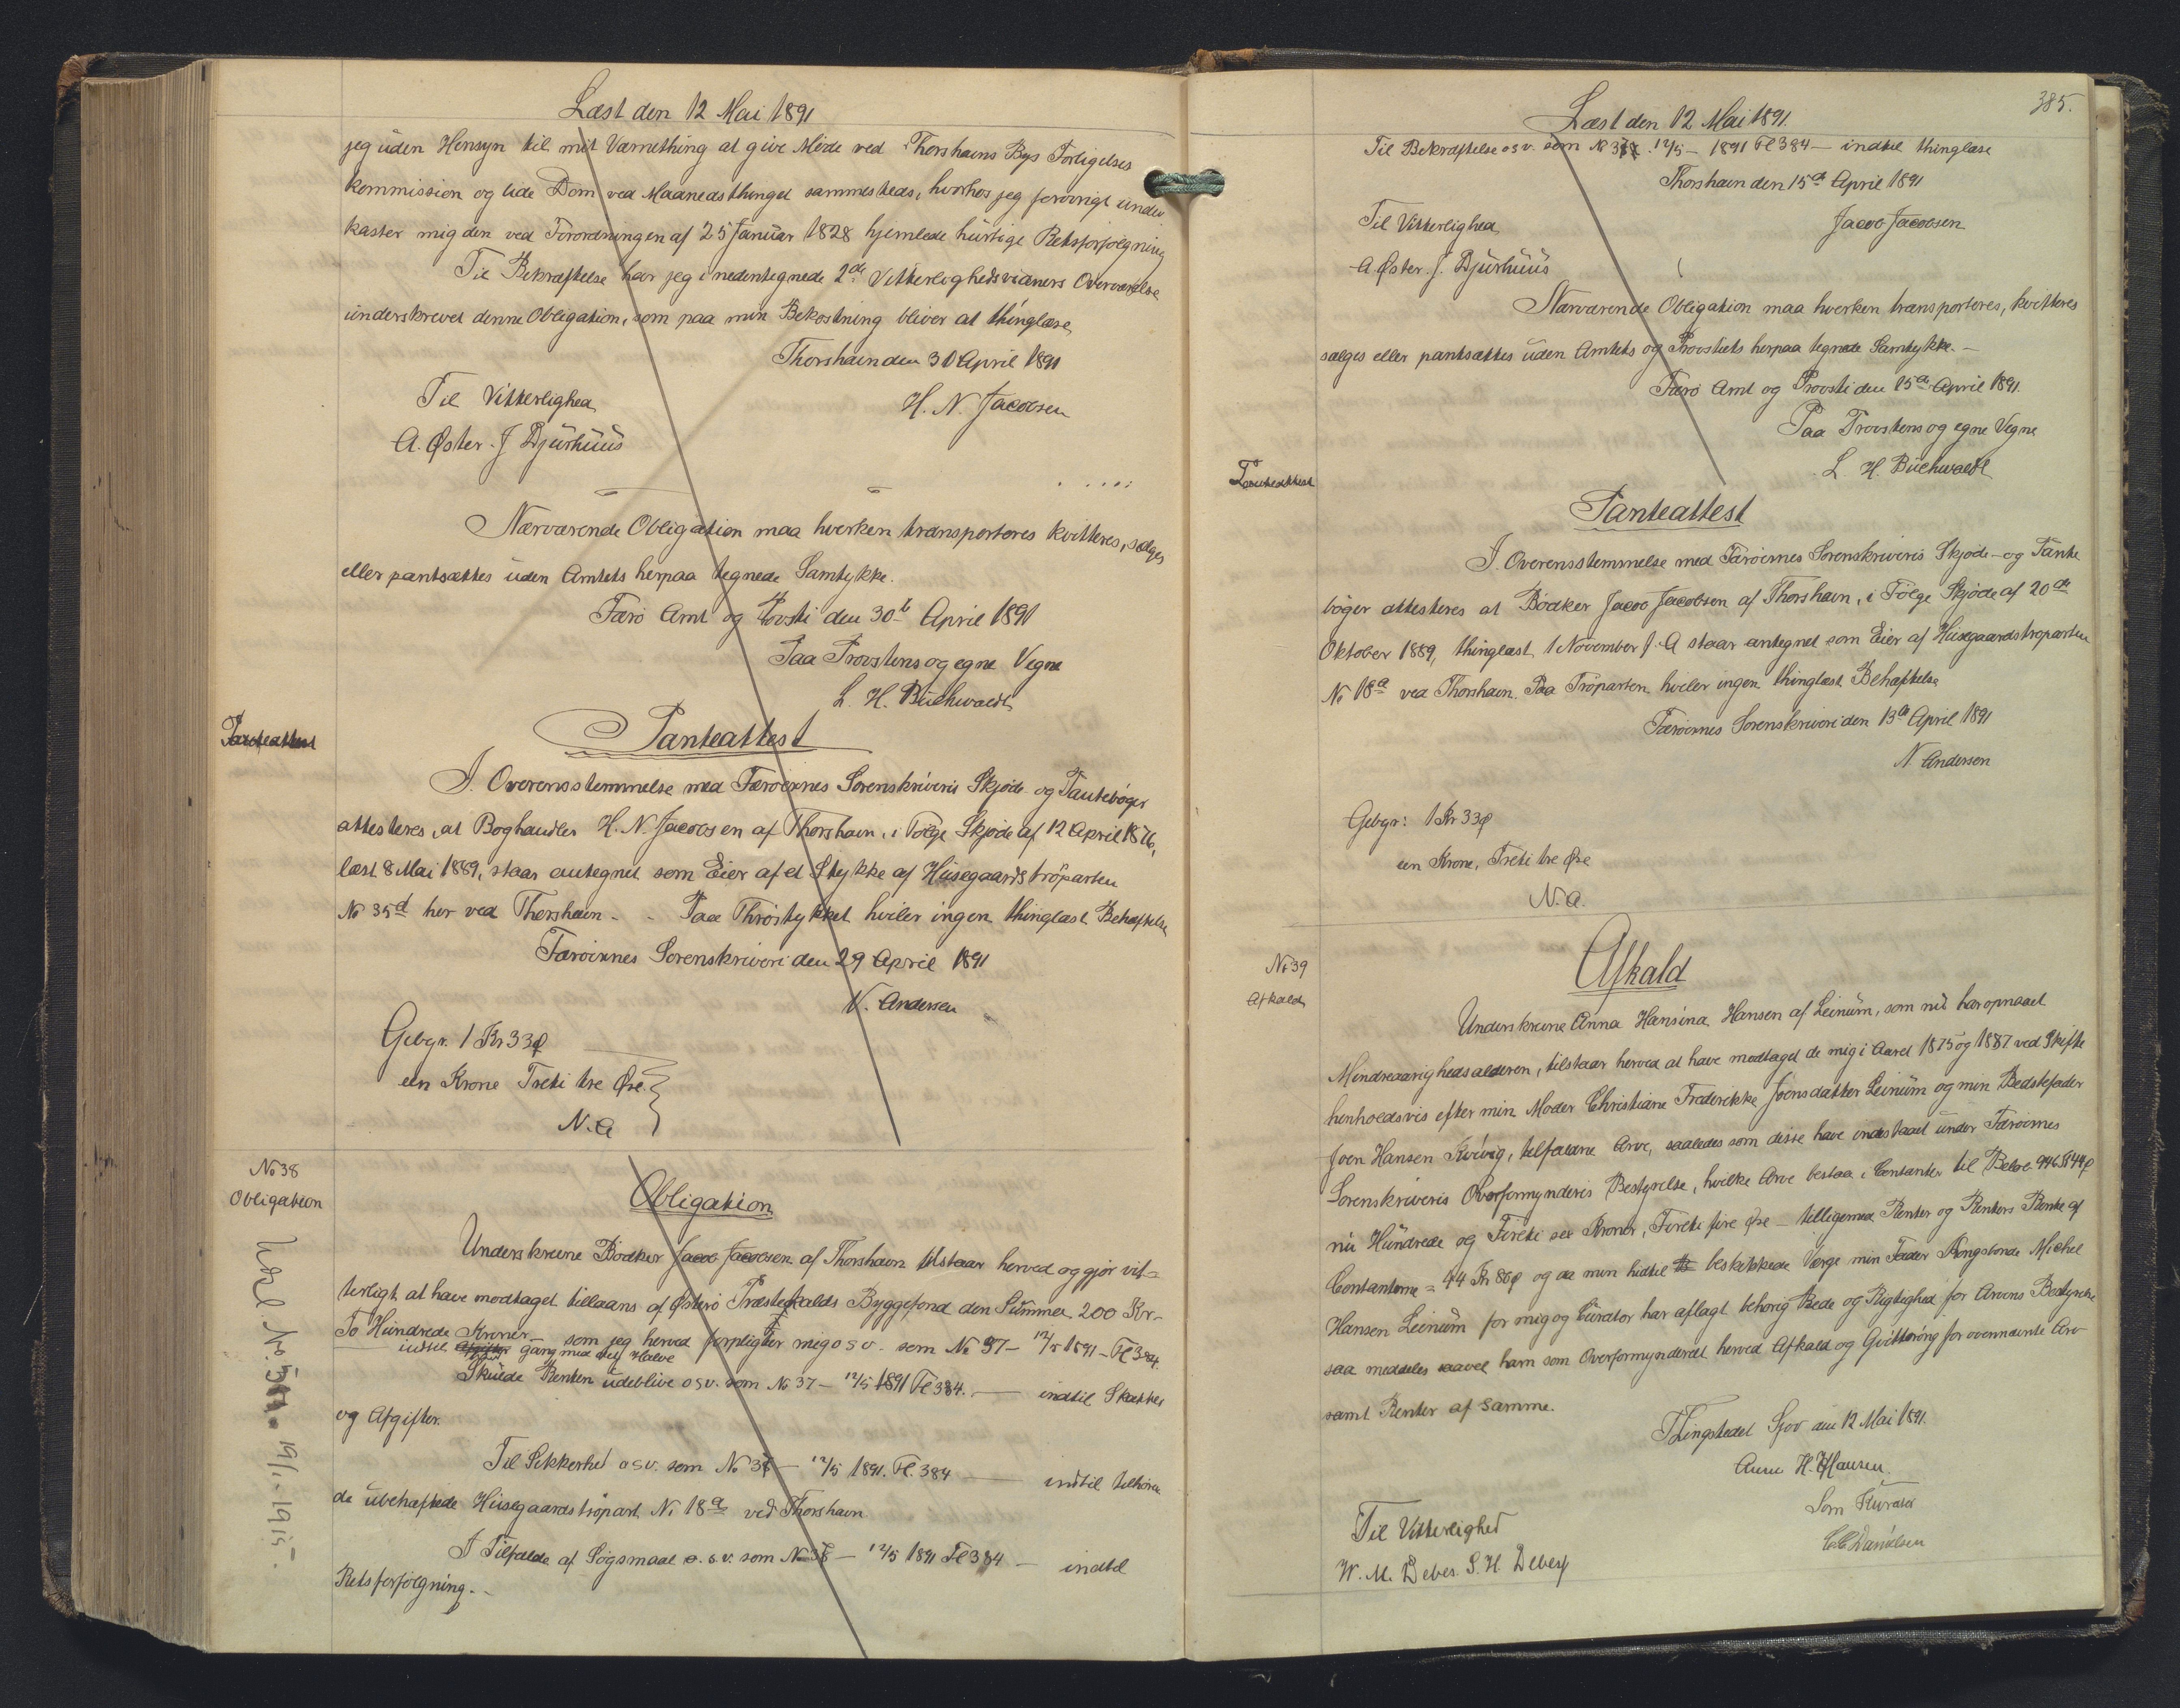 Læst den 12 Mai 1891
jeg uden Hensyn til mit Værnething at give Møde ved Thorshavns Bys Forligelses
kommission og lide Dom ved Maanedsthinget sammesteds, hvorhos jeg forøvrigt under
kaster mig den ved Forordningen af 25 Januar 1828 hjemlede hurtige Retsforfølgning
Til Bekræftelse har jeg i nedentegnede 2de Vitterlighedsvidners Overværelse
underskrevet denne Obligation, som paa min Bekostning bliver at thinglæse
Thorshavn den 30 April 1891
Til Vitterlighed
H. N. Jacobsen
A. Øster. J Djurhuus
Nærværende Obligation maa hverken transporteres kvitteres, sælges
eller pantsættes uden Amtets herpaa tegnede Samtykke.
Færø Amt og Provsti den 30te April 1891
Paa Provstens og egne Vegne
L. H. Buchwaldt
Panteattest
Panteattest
I Overensstemmelse med Færøernes Sorenskriveris Skjøde og Pantebøger
attesteres, at Boghandler H. N. Jacobsen af Thorshavn, i Følge Skjøde af 12 April 1876,
læst 8 Mai 1889, staar antegnet som Eier af et Stykke af Husegaardstrøparten
No 35d her ved Thorshavn - - Paa Thrøstykket hviler ingen thinglæst Behæftelse
Færøernes Sorenskriveri den 29 April 1891
N. Andersen
Gebyr. 1 Kr 33ø
een Krone Treti tre Øre.
N. A
No 38
Obligation
Obligation
Underskrevne Bødker Jacob Jacobsen af Thorshavn tilstaar herved og gjør vit=
terligt at have modtaget tillaans af Østerø Præstekalds Byggefond den Summa 200 Kr-
To Hundrede Kroner - som jeg herved forpligter mig o s v. som No 37 - 12/5 1891 - Fl 384.
indtil gang med
Skulde Renten udeblive o s v. som No 37 - 12/5 1891 Fl 384. - indtil Skatter
og Afgifter.
Til Sikkerhed o s v. som No 37 - 12/5 1891. Fl. 384 - indtil tilhøren
de ubehæftede Husegaardstrøpart No 18a ved Thorshavn
I Tilfælde af Søgsmaal o. s. v. som No 37 - 12/5 1891 Fl 384 - indtil
Retsforfølgning. -
385.
Læst den 12 Mai 1891.
Til Bekræftelse o s v. som No 37. 12/5 - 1891 Fl 384 - indtil thinglæse
Thorshavn den 15de April 1891
Til Vitterlighed
Jacob Jacobsen
A. Øster. J. Djurhuus
Nærværende Obligation maa hverken transporteres, kvitteres
sælges eller pantsættes uden Amtets og Provstiets herpaa tegnede Samtykke. -
Færø Amt og Provsti den 15de April 1891.
Paa Provstens og egne Vegne
L. H. Buchwaldt
Panteattest
Panteattest
I Overensstemmelse med Færøernes Sorenskriveris Skjøde- og Pante
bøger attesteres at Bødker Jacob Jacobsen af Thorshavn, i Følge Skjøde af 20de
Oktober 1889, thinglæst 1 November s. A staar antegnet som Eier af Husegaardstroparten
No 18a ved Thorshavn. Paa Trøparten hviler ingen thinglæst Behæftelse
Færøernes Sorenskriveri den 13de April 1891
N Andersen
Gebyr: 1 Kr 33ø
een Krone, Treti tre Øre
N. A.
No 39
Afkald
Afkald
Underskrevne Anna Hansina Hansen af Leinum, som nu har opnaaet
Mindreaarighedsalderen, tilstaar herved at have modtaget de mig i Aaret 1875 og 1887 ved Skifte
henholdsvis efter min Moder Christiane Frederikke Joensdatter Leinum og min Bedstefader
Joen Hansen Kvivig, tilfaldne Arve, saaledes som disse have indestaaet under Færøernes
Sorenskriveris Overformynderis Bestyrelse, hvilke Arve bestaa i Contanter til Beløb 946 Kr 44ø
ni Hundrede og Firetí sex Kroner, Fireti fire Øre - tilligemed Renter og Renters Rente af
Contanterne = 44 Kr 80ø og da min hidtil beskikkede Værge min Fader Kongsbonde Michel
Hansen Leinum for mig og Curator har aflagt behørig Rede og Rigtighed for Arvens Bestyrelse
saa meddeles saavel ham som Overformynderiet herved Afkald og Qvittering for ovennævnte Arv
samt Renter af samme.
Thingstedet Sjov den 12 Mai 1891.
Anna H. Hansen.
Som Kurator
Danielsen
Til Vitterlighed
W. M. Debes. S. H. Debes